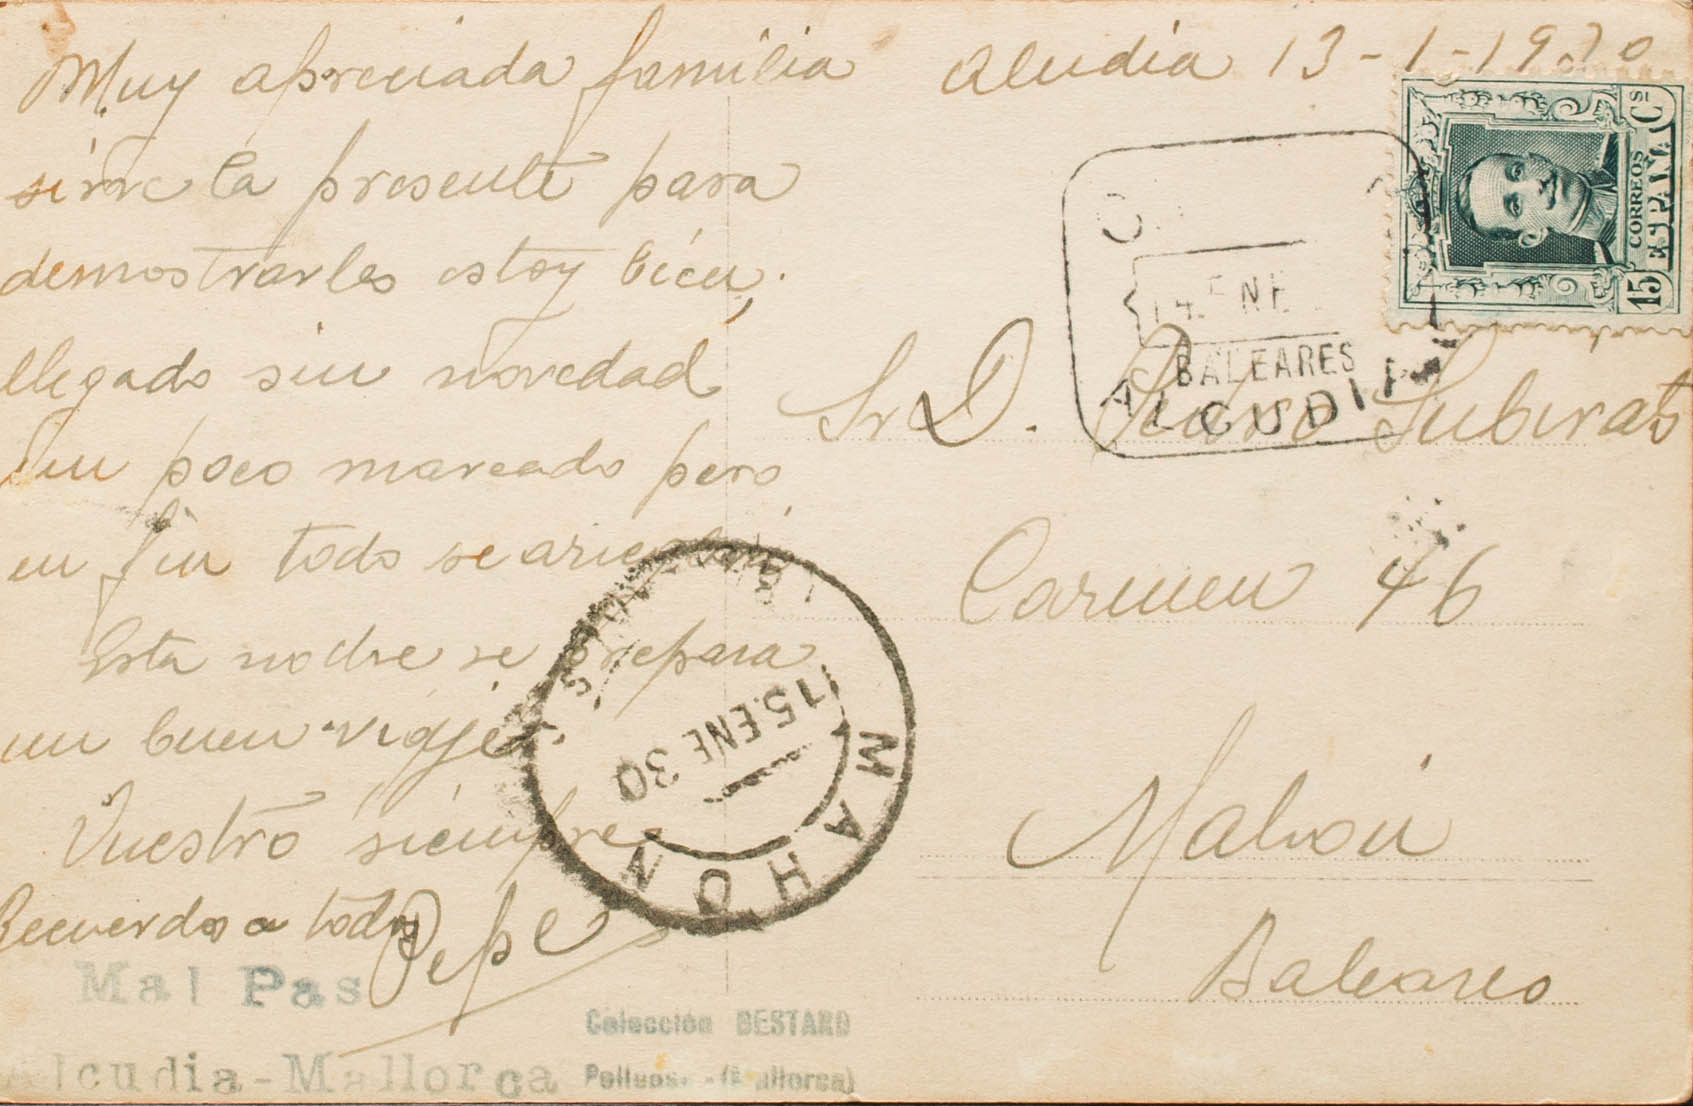 Muy apreciada familia
sirve la presente para
demostrarles estoy bien,
llegado sin novedad
un poco mareado pero
en fin todo se
Esta nodse se prepara
un buen viaje.
Vuestro siempre
Recuerdos a todos
Pepe
Mal Pas
Alcudia-Mallorca
Colección BESTARD
(Mallorca)
Aludia 13-1-1930
CORREOS
ESPAÑA
15 Cs
14 ENE
BALEARES
ALCUDIA
Sr D. Pedro Subirats
Carmen 46
Mahon
Baleares
15.ENE 30
MAHON